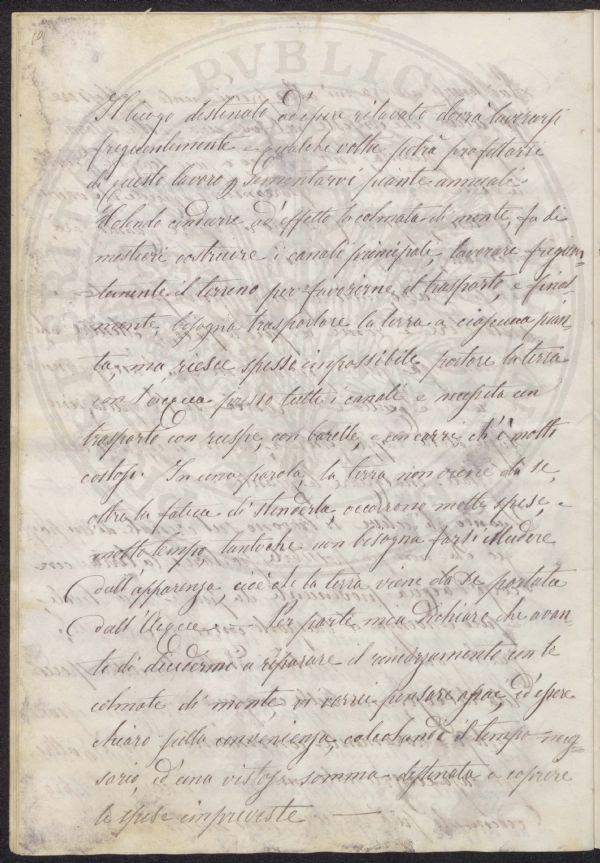 Il luogo destinato ad essere rilavato dovrà lavorarsi
frequentemente e qualche volta potrà profittarsi
di questo lavoro p sementarvi piante annuali.
Volendo condurre ad effetto la colmata di monte, fa di
mestieri costruire i canali principali, lavorare frequen-
temente il terreno per favorirne il trasporto, e final
mente, bisogna trasportare la terra a ciascuna pian
ta, ma riesce spesso impossibile portare la terra
con l'acqua presso tutti i canali e necessita un
trasporto con ruspe, con barelle, e con carri ch'è molto
costoso. In una parola, la terra non viene da se,
oltre la fatica di stenderla, occorrono molte spese, e
molto tempo, tantoche non bisogna farsi illudere
dall'apparenza cioè che la terra viene da se portata
dall'Acque. Per parte mia dichiaro che avan-
te di decidermi a riparare il con le
colmate di monte, vi vorrei pensare assai, ed essere
chiaro sulla convenienza, calcolando il tempo neces
sario, ed una vistosa somma destinata a coprire
le spese impreviste —